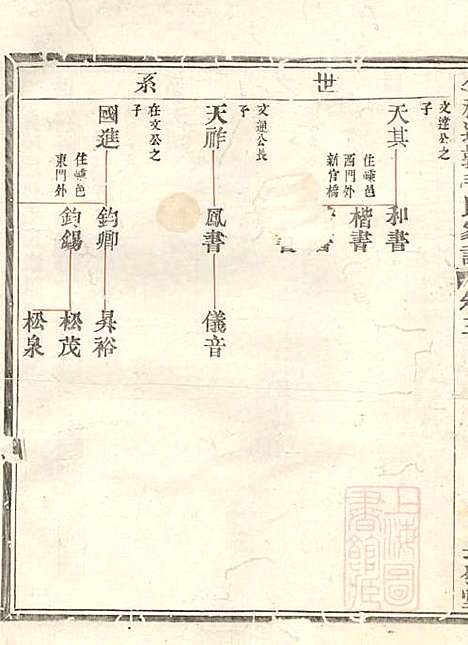 世系
文達公之子
天其
住嵊邑西門外新官橋
和書
楷書
書
文迴公長子
天祚
鳳書
儀音
在文公之子
國進
住嵊邑東門外
鈞卿
鈞錫
昇裕
松茂
松泉
上海圖書館藏